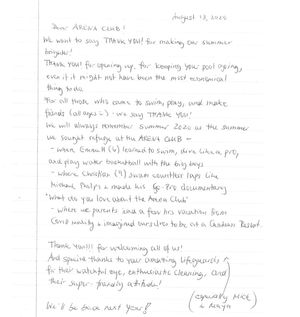 August 13, 2020
Dear ARENA CLUB!
We want to say THANK YOU! for making our summer
brighter!
Thank you! for opening up, for keeping your pool going,
even if it might not have been the most economical
thing to do.
For all those who came to swim, play, and make
friends (all ages) - we say THANK YOU!
We will always remember Summer 2020 as the summer
we sought refuge at the ARENA CLUB -
- where (6) learned to swim, dive like a pro,
and play water basketball with the big boys
- where Christian (9) swam countless laps like
Michael Phelps & made his Go-Pro documentary
"What do you love about the Arena Club"
- where we parents had a few hrs vacation from
Covid reality & imagined ourselves to be at a Resort.
Thank You!!! for welcoming all of us!
And special thanks to your amazing lifeguards
for their watchful eye, enthusiastic cleaning, and
their super-friendly attitude!
(especially Nick
&
We'll be back next year!